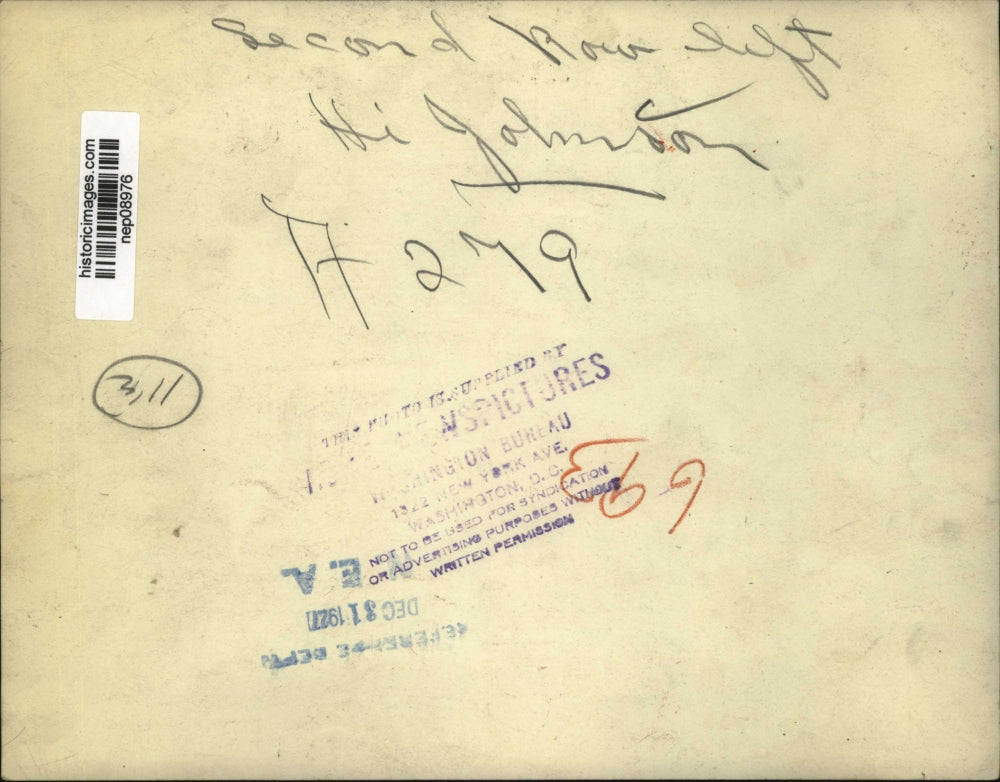 Second Row left
Hi Johnson
A 279
historicimages.com
nep08976
THIS PHOTO IS SUPPLIED BY
NEWSPICTURES
WASHINGTON BUREAU
1322 NEW YORK AVE.
WASHINGTON, D. C.
NOT TO BE USED FOR SYNDICATION
OR ADVERTISING PURPOSES WITHOUT
WRITTEN PERMISSION
N. E. A.
DEC 31 1927
REFERENCE DEPT.